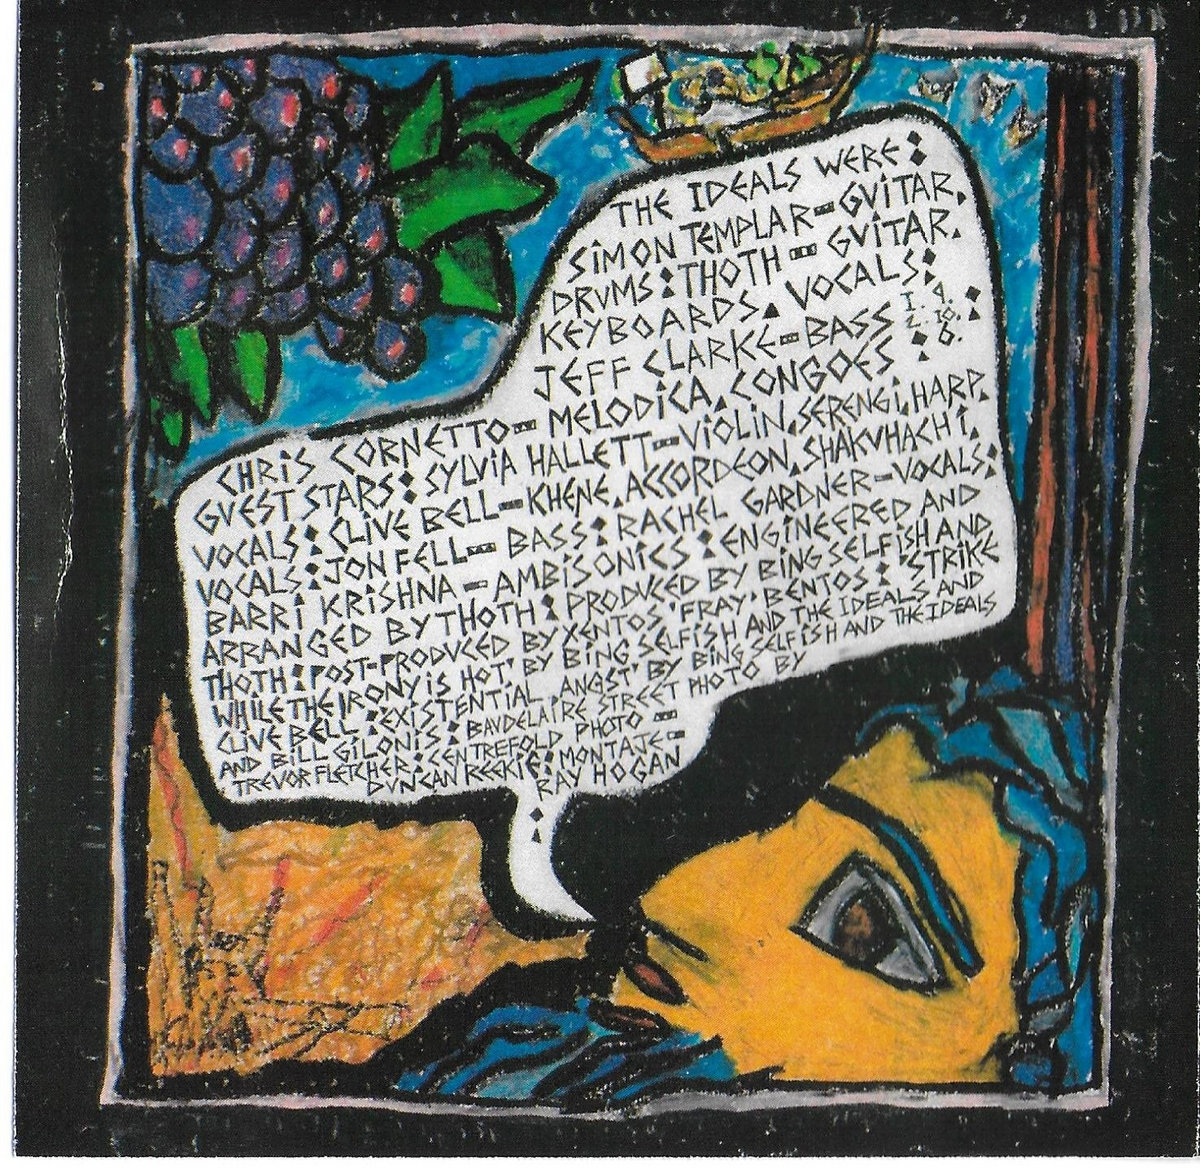 THE IDEALS WERE:
SIMON TEMPLAR-GUITAR,
DRUMS: THOTH - GUITAR.
KEYBOARDS. VOCALS:
JEFF CLARKE-BASS 1. 9.
2. 10.
6.
CHRIS CORNETTO- MELODICA, CONGOES:
GUEST STARS: SYLVIA HALLETT-VIOLIN, SERENGI, HARP.
VOCALS: CLIVE BELL-KHENE, ACCORDEON, SHAKUHACHI,
VOCALS: JON FELL- BASS: RACHEL GARDNER-VOCALS:
BARRI KRISHNA - AMBISONICS: ENGINEERED AND
ARRANGED BY THOTH: PRODUCED BY BING SELFISH AND
THOTH: POST-PRODUCED BY XENTOS 'FRAY' BENTOS: 'STRIKE
WHILE THE IRONY IS HOT' BY BING SELFISH AND THE IDEALS AND
CLIVE BELL: 'EXISTENTIAL ANGST' BY BING SELFISH AND THE IDEALS
AND BILL GILONIS: BAUDELAIRE STREET PHOTO BY
TREVOR FLETCHER: CENTREFOLD PHOTO -
DUNCAN REEKIE: MONTAJE-
RAY HOGAN